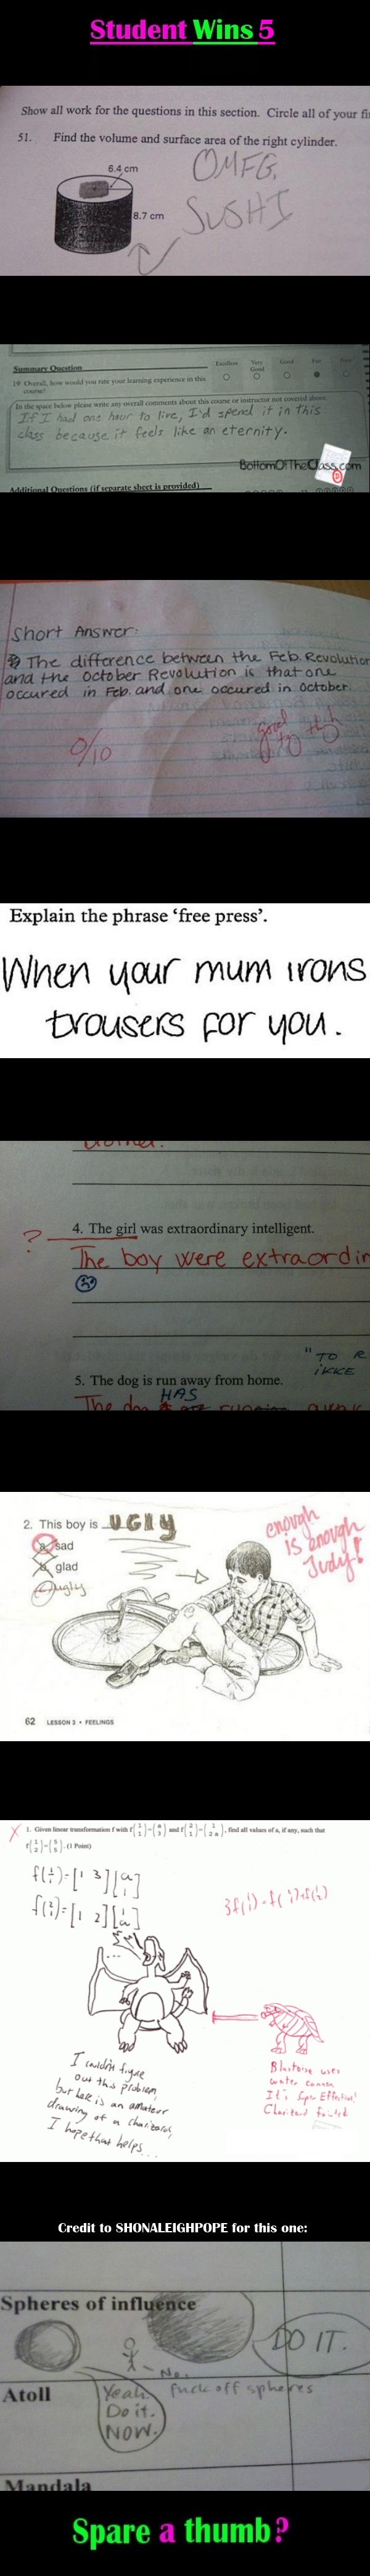 Student Wins 5
Show all work for the questions in this section. Circle all of your
51. Find the volume and surface area of the right cylinder.
6.4 cm
8.7 cm
OMFG,
SUSHI
Summary Question
Excellent Very Good Good Fair
19 Overall, how would you rate your learning experience in this course?
In the space below please write any overall comments about this course or instructor not covered above.
If I had one hour to live, I'd spend it in this
class because it feels like an eternity.
BottomOfTheClass.com
Additional Questions (if separate sheet is provided)
Short Answer:
The difference between the Feb. Revolution
and the October Revolution is that one
occured in Feb. and one occured in October.
0/10
good try tho
Explain the phrase 'free press'.
When your mum irons
trousers for you.
?
4. The girl was extraordinary intelligent.
The boy were extraordin
"TO R
IKKE
5. The dog is run away from home.
HAS
2. This boy is UGLY
a. sad
b. glad
c. ugly
enough
is enough
Judy!
62 LESSON 3 • FEELINGS
1. Given linear transformation f with f(1 1)=(a 3) and f(2 1)=(1 2a), find all values of a, if any, such that
f(1 2)=(5 5). (1 Point)
I couldn't figure
out this problem,
but here is an amateur
drawing of a charizard,
I hope that helps...
Blastoise uses
water cannon
It's Super Effective!
Charizard fainted
Credit to SHONALEIGHPOPE for this one:
Spheres of influence
DO IT.
No.
fuck off spheres
Atoll
Yeah.
Do it.
NOW.
Mandala
Spare a thumb?